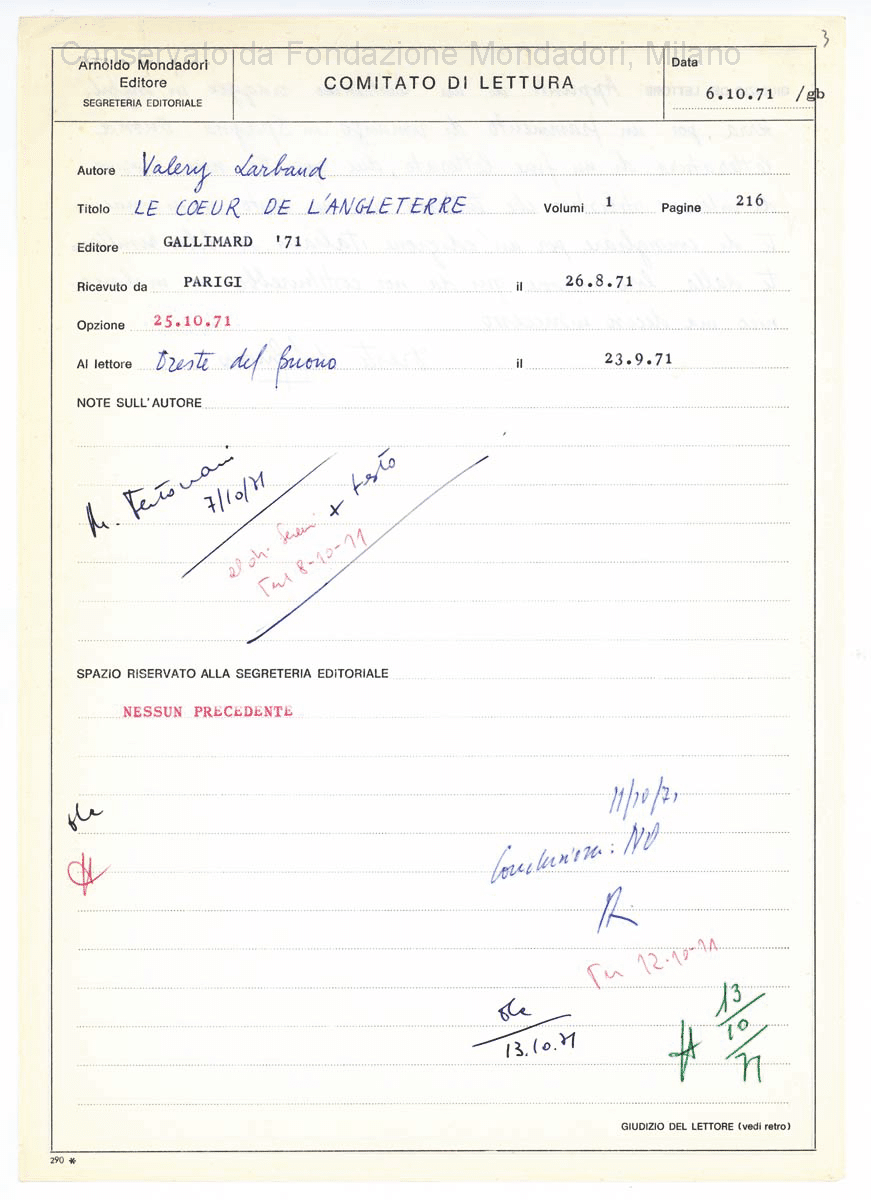 3
Conservato da Fondazione Mondadori, Milano
Arnoldo Mondadori
Editore
SEGRETERIA EDITORIALE
COMITATO DI LETTURA
Data
6.10.71 /gb
Autore Valery Larbaud
Titolo LE COEUR DE L'ANGLETERRE Volumi 1 Pagine 216
Editore GALLIMARD '71
Ricevuto da PARIGI il 26.8.71
Opzione 25.10.71
Al lettore Oreste del Buono il 23.9.71
NOTE SULL'AUTORE
7/10/71
+ testo
al dr. Sereni
8-10-71
SPAZIO RISERVATO ALLA SEGRETERIA EDITORIALE
NESSUN PRECEDENTE
11/10/71
Conclusione: NO
12.10.71
13.10.71
13
10
71
GIUDIZIO DEL LETTORE (vedi retro)
290 *